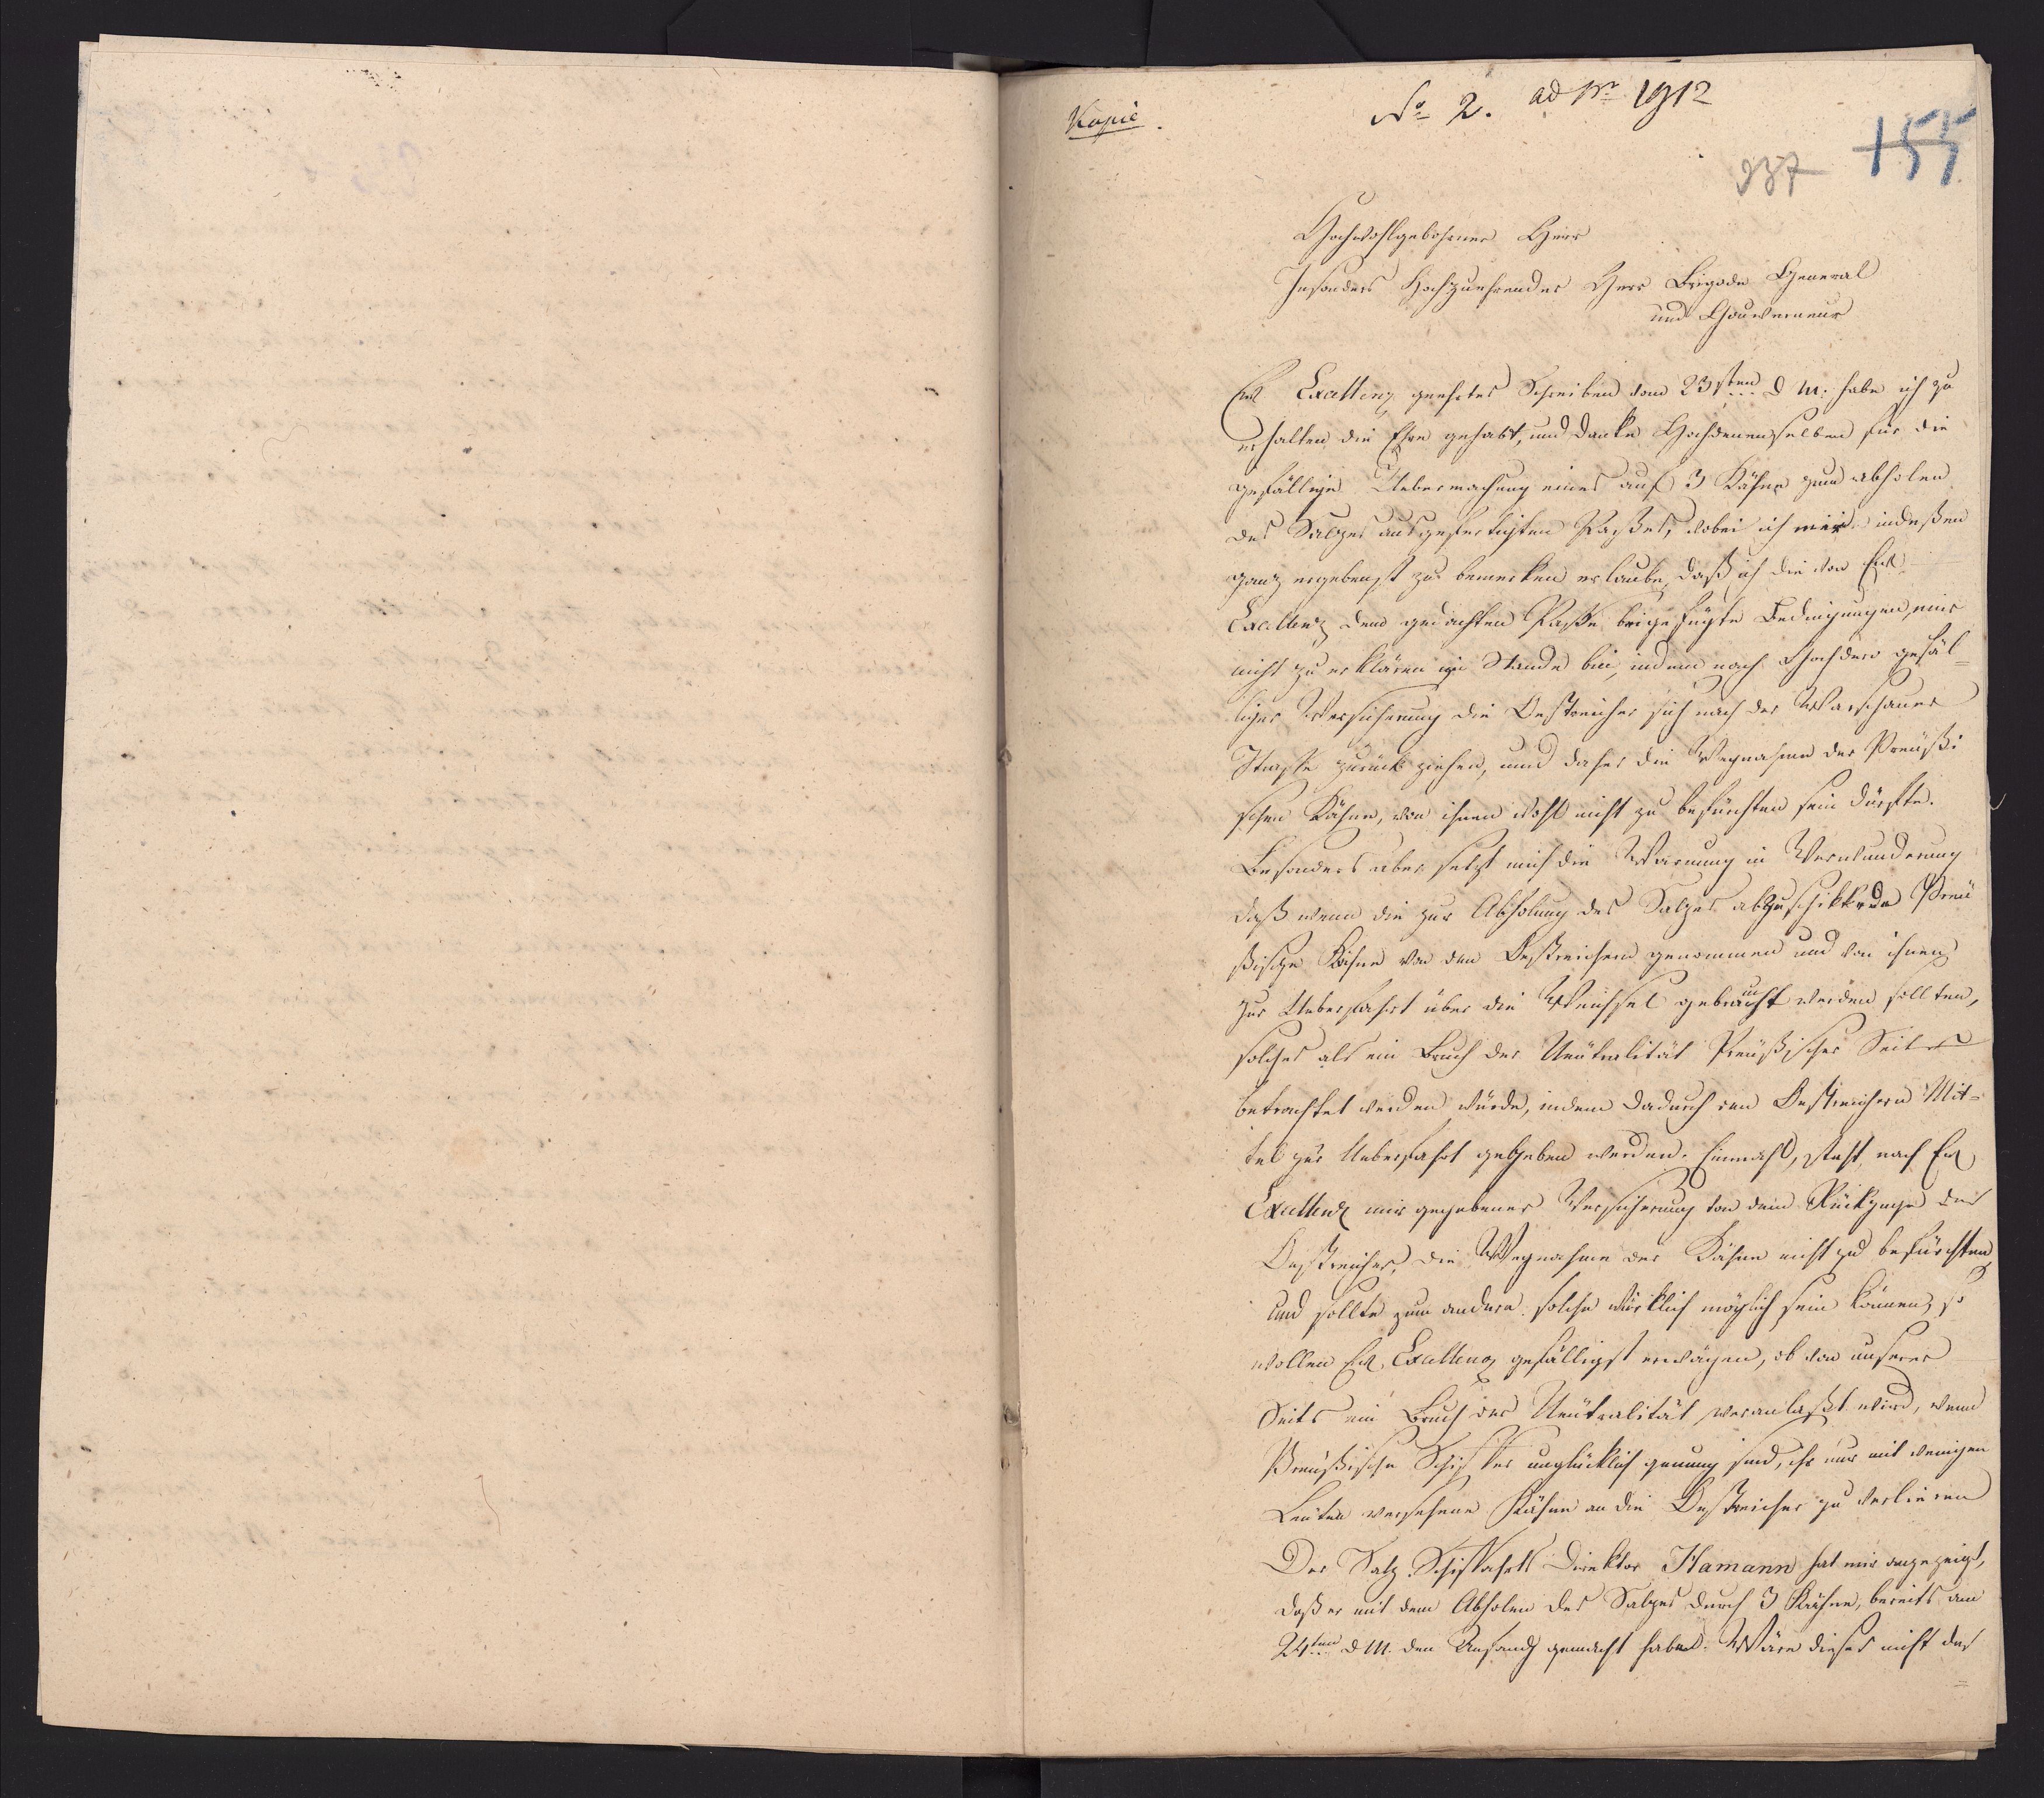 Kopie.
No 2. ad Nr 1912
937
155
Hochwohlgebohrner Herr
Insonders Hochzuehrender Herr Brigade General
und Gouverneur
Ew Excellenz geehrtes Schreiben vom 23sten d M: habe ich zu
erhalten die Ehre gehabt, und danke Hochdenenselben für die
gefällige Uebermachung eines auf 3 Kähne zum abholen
des Salzes ausgefertigten Paßes, wobei ich mir indeßen
ganz ergebenst zu bemerken erlaube, daß ich die von Ew
Excellenz dem gedachten Paße beigefügte Bedingungen, mir
nicht zu erklären im Stande bin, indem nach Hochdero gefäl=
liger Versicherung die Oestreicher sich nach der Warschauer
Straße zurück ziehen, und daher die Wegnahme der Preußi
schen Kähne, von ihnen wohl nicht zu befürchten sein dürfte.
Besonders aber setzt mich die Warnung in Verwunderung
daß wenn die zur Abholung des Salzes abzuschikkende Preu
ßische Kähne von den Oestreichern genommen und von ihnen
zur Ueberfahrt über die Weichsel gebraucht werden sollten,
solches als ein Bruch der Neutralität Preußischer Seits
betrachtet werden würde, indem dadurch den Oestreichern Mit=
tel zur Ueberfahrt gegeben werden. Einmahl, steht nach Ew
Excellenz mir gegebener Versicherung von dem Rückzuge der
Oestreicher, die Wegnahme der Kähne nicht zu befürchten,
und sollte zum andern solche würklich möglich sein können, so
wollen Ew. Excellenz gefälligst erwägen, ob von unserer
Seits ein Bruch der Neutralität veranlaßt wird, wenn
Preußische Schiffer unglücklich genung sind, ihr nur mit wenigen
Leuten versehene Kähne an die Oestreicher zu verlieren
Der Salz Schiffahrts Direktor Hamann hat mir angezeigt,
daß er mit dem Abholen des Salzes durch 3 Kähne, bereits am
24ten d M. den Anfang gemacht habe. Wäre dieses nicht der